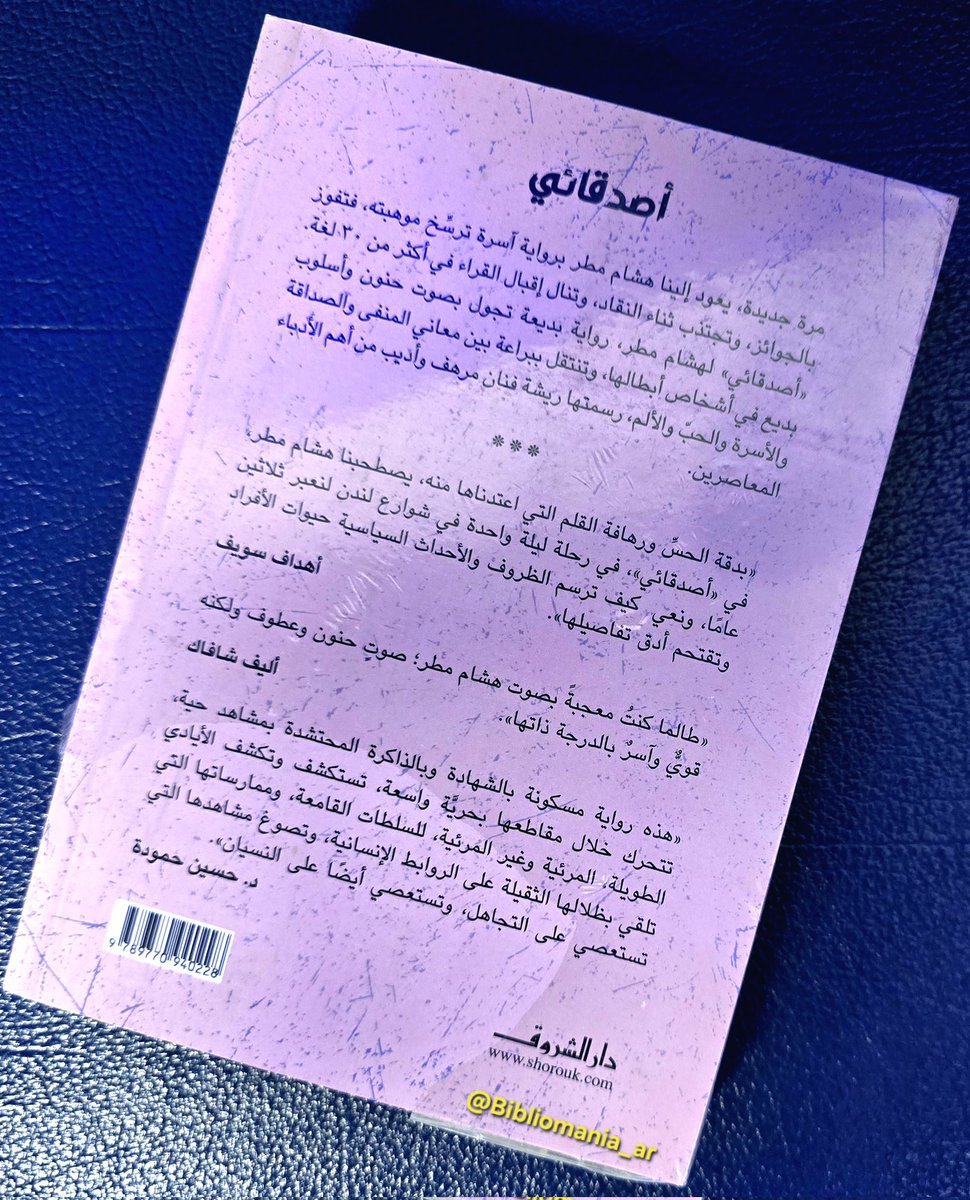 أصدقائي
مرة جديدة، يعود إلينا هشام مطر برواية آسرة ترسِّخ موهبته، فتفوز
بالجوائز، وتجتذب ثناء النقاد، وتنال إقبال القراء في أكثر من ٣٠ لغة.
«أصدقائي» لهشام مطر، رواية بديعة تجول بصوت حنون وأسلوب
بديع في أشخاص أبطالها، وتنتقل ببراعة بين معاني المنفى والصداقة
والأسرة والحبّ والألم، رسمتها ريشة فنان مرهف وأديب من أهم الأدباء
المعاصرين.
***
«بدقة الحسِّ ورهافة القلم التي اعتدناها منه، يصطحبنا هشام مطر،
في «أصدقائي»، في رحلة ليلة واحدة في شوارع لندن لنعبر ثلاثين
عامًا، ونعي كيف ترسم الظروف والأحداث السياسية حيوات الأفراد
وتقتحم أدق تفاصيلها».
أهداف سويف
«طالما كنتُ معجبةً بصوت هشام مطر؛ صوت حنون وعطوف ولكنه
قويٌّ وآسرٌ بالدرجة ذاتها».
أليف شافاك
«هذه رواية مسكونة بالشهادة وبالذاكرة المحتشدة بمشاهد حية،
تتحرك خلال مقاطعها بحريَّة واسعة، تستكشف وتكشف الأيادي
الطويلة، المرئية وغير المرئية، للسلطات القامعة، وممارساتها التي
تلقي بظلالها الثقيلة على الروابط الإنسانية، وتصوغ مشاهدها التي
تستعصي على التجاهل، وتستعصي أيضًا على النسيان».
د. حسين حمودة
9 789770 940228
دار الشروق
www.shorouk.com
@Bibliomania_ar